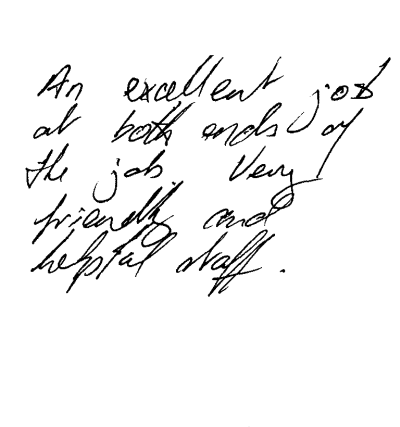 An excellent job
at both ends of
the job. Very
friendly and
helpful staff.